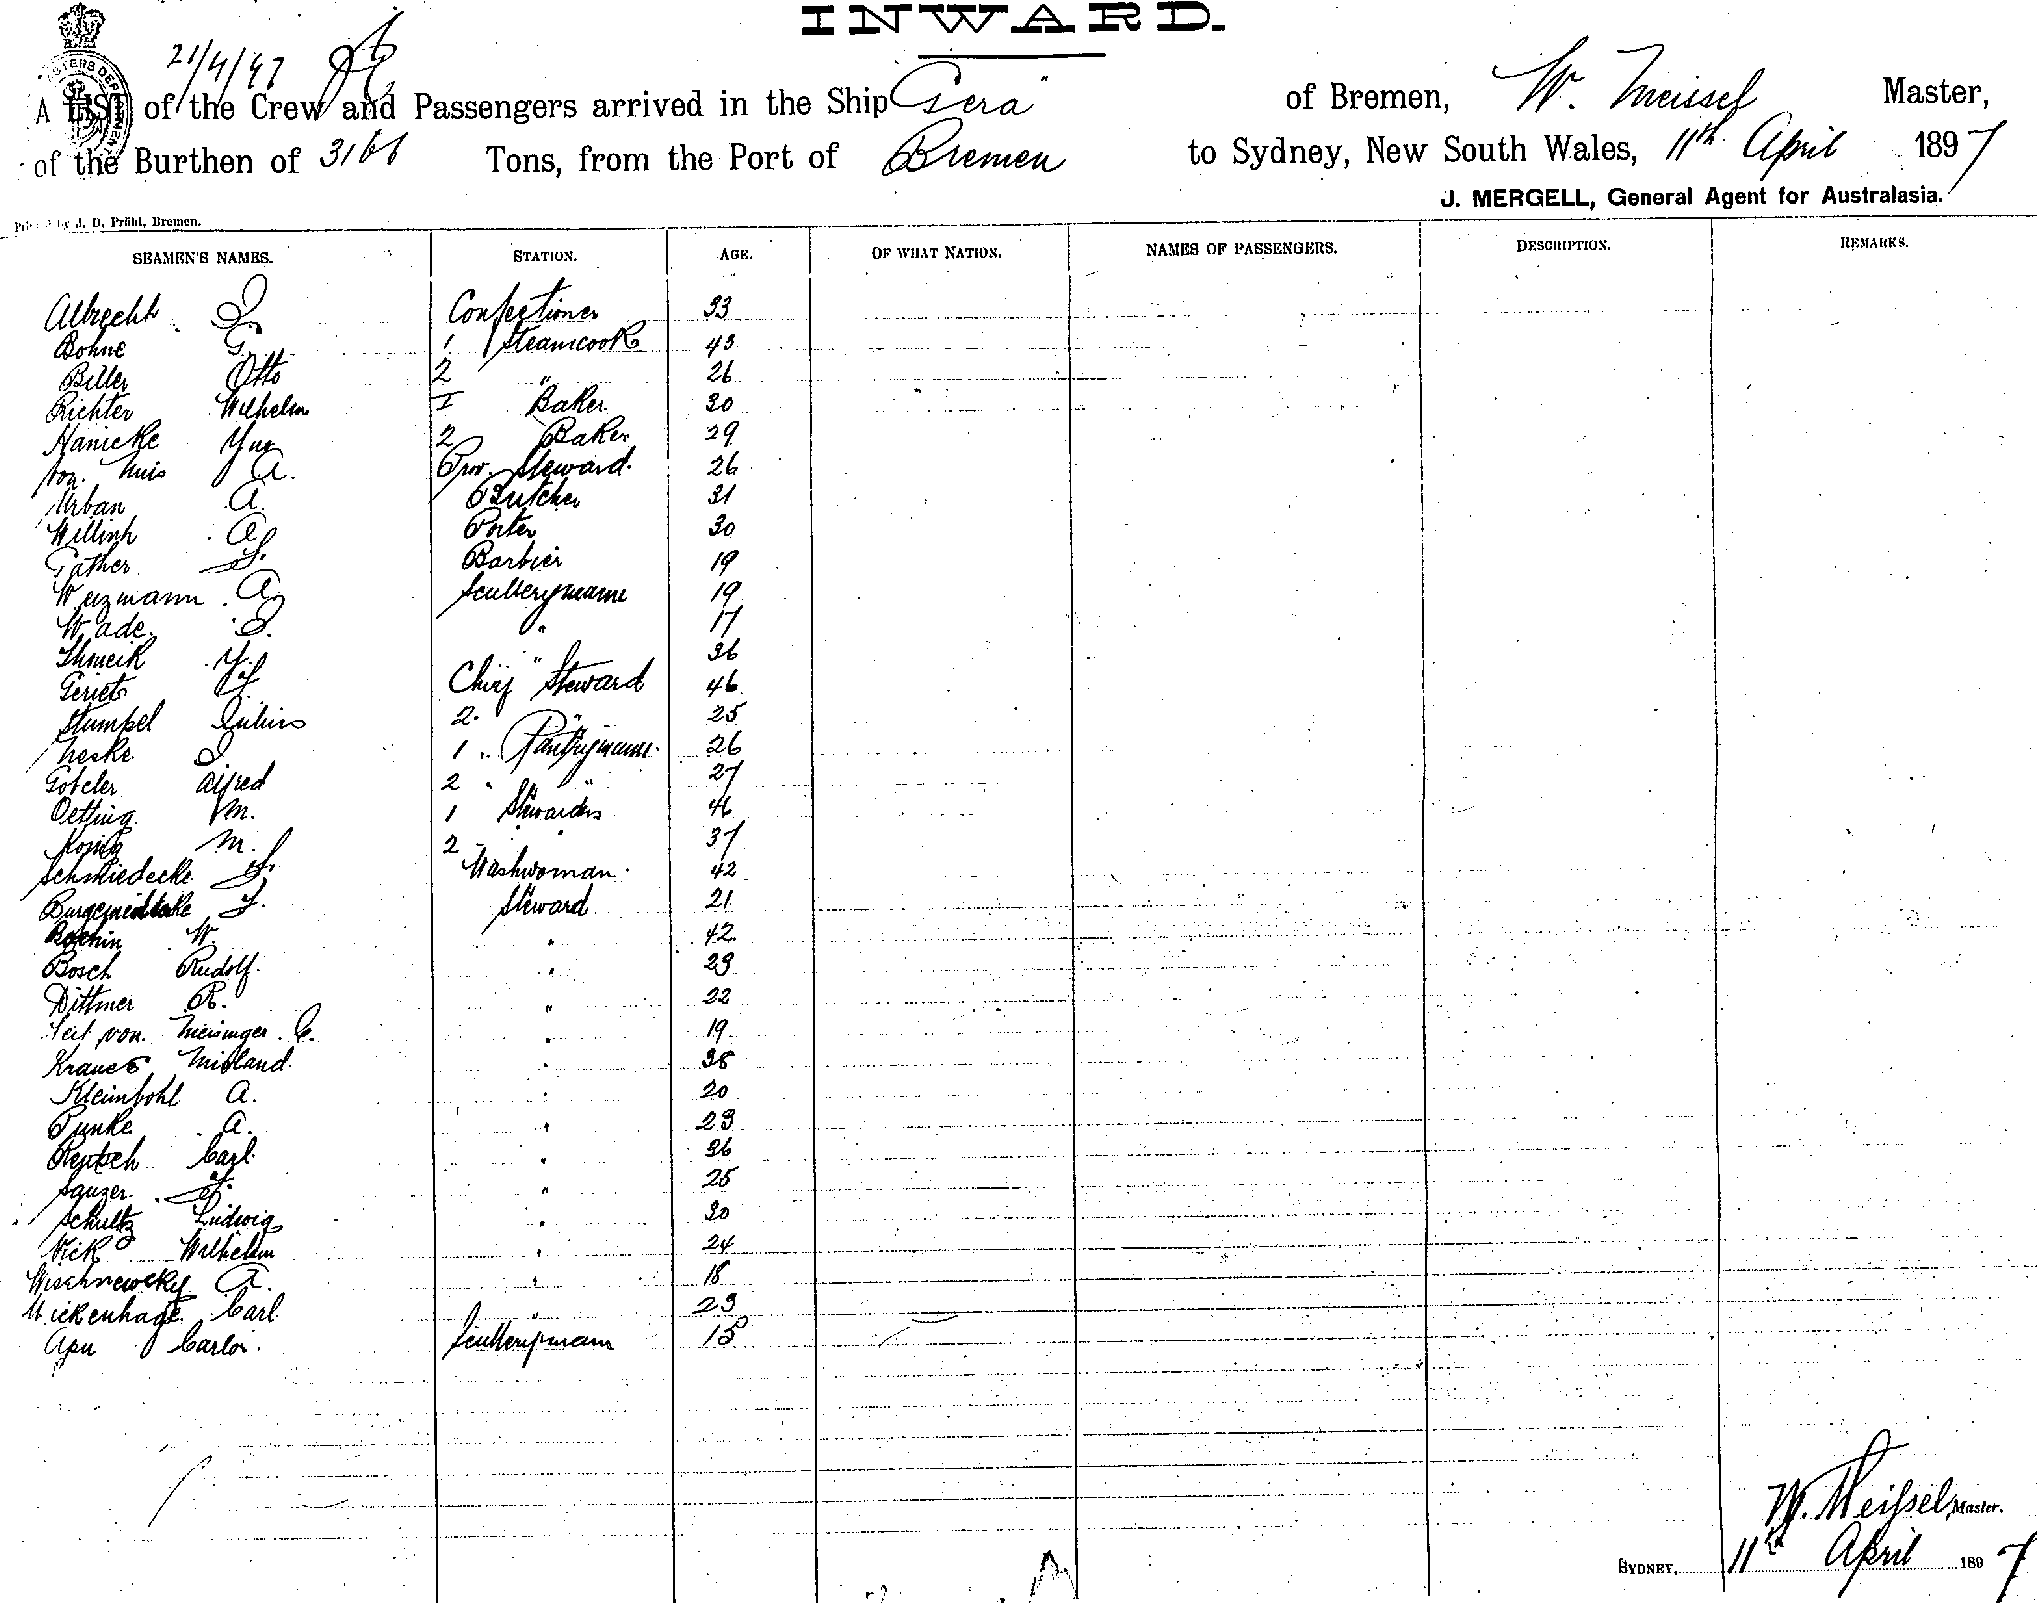 INWARD.
21/4/97
A LIST of the Crew and Passengers arrived in the Ship "Gera" of Bremen, W. Meissel Master,
of the Burthen of 3166 Tons, from the Port of Bremen to Sydney, New South Wales, 11th April 1897
J. MERGELL, General Agent for Australasia.
Printed by J. D. Prühl, Bremen.
SEAMEN'S NAMES. STATION. AGE. OF WHAT NATION. NAMES OF PASSENGERS. DESCRIPTION. REMARKS.
Albrecht Confectioner 33
Bohne G. 1 Steamcook 43
Biller Otto 2 " 26
Richter Wilhelm I Baker 30
Hanicke 2 Baker 29
von Nuis A. Prov. Steward. 26
Urban A. Butcher 31
Willinh A. Porter 30
Gather Barbier 19
Weizmann A. Scullerymann 19
Wade. " 17
" 36
Geriets Chief Steward 46
Stumpel Julius 2. " 25
Neske 1 " Pantrymann. 26
Gobeler Alfred 2 " " 27
Oetting M. 1 Stewardess 46
M. 2 " 37
Schmiedecke Washwoman. 42
Steward 21
W. " 42
Bosch Rudolf. " 23
Dittmer R. " 22
Seit von Meisinger C. " 19
" 38
Kleinbohl A. " 20
Punke A. " 23
Rentsch Carl " 36
Sanzer " 25
Schultz Ludwig " 30
Vick Wilhelm " 24
Wischnewsky A. " 18
Wickenhage Carl " 23
Apu Carlos. Scullerymann 15
W. Meissel, Master.
SYDNEY, 11th April 1897